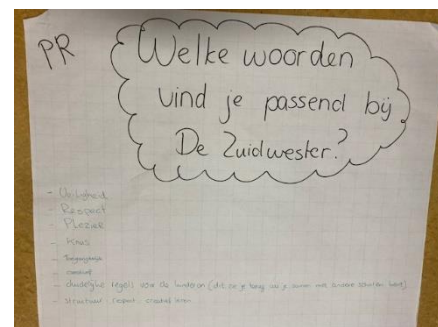 PR
Welke woorden
vind je passend bij
De Zuidwester?
- Veiligheid
- Respect
- Plezier
- Knus
- Toegankelijk
- creatief
- duidelijke regels voor de kinderen (dit
- structuur, respect, creatief leren